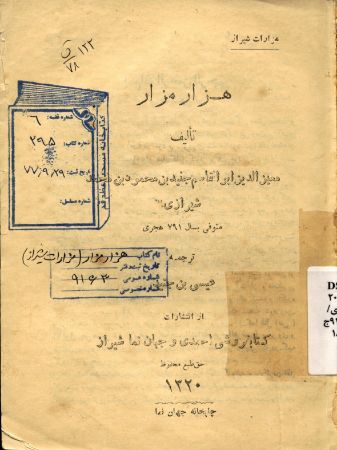 مزارات شیراز
هزار مزار
تألیف
معین‌الدین ابوالقاسم جنید بن محمود بن محمد
شیرازی
متوفی بسال ۷۹۱ هجری
ترجمه
عیسی بن جنید
از انتشارات
کتابفروشی احمدی و جهان نما شیراز
حق طبع محفوظ
۱۳۲۰
چاپخانه جهان نما
۱۲۳
۷۸
کتابخانه مسجد اعظم قم
شماره قفسه: ۶
شماره کتاب: ۲۹۵
تاریخ ثبت: ۷۷/۹/۸۹
شماره مسلسل:
نام کتاب هزار مزار (مزارات شیراز)
تاریخ ثبت دفتر
شماره عمومی ۹۱۶۳
شماره خصوصی